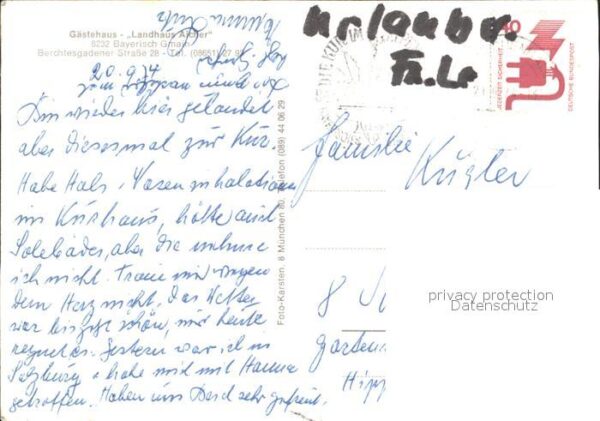 Gästehaus - „Landhaus Aicher"
8232 Bayerisch Gmain
Berchtesgadener Straße 28 - Tel. (08651) 27 9
20.9.74
Bin wieder hier gelandet
aber diesesmal zur Kur.
Habe Hals, Nasen inhalationen
im Kurhaus, hätte auch
Solebäder, aber die nehme
ich nicht. Traue mir wegen
dem Herz nicht. Das Wetter
war bis jetzt schön, nur heute
regnet es. Gestern war ich in
Salzburg + habe mich mit Hanna
getroffen. Haben uns beid sehr gefreut.
Foto-Karsten. 8 München 80. Telefon (089) 44 06 29
Urlauber
Fa. Le
40
JEDERZEIT SICHERHEIT
DEUTSCHE BUNDESPOST
Familie
Kugler
8
privacy protection
Datenschutz
Garten
Hipp